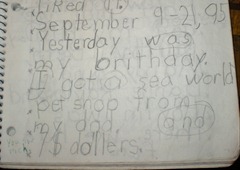 liked it.
September 9-21, 95
Yesterday was
my brithday.
I got a sea world
pet shop from
my dad. and
16 dollers.